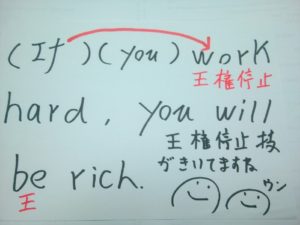 (If)(you) work
王権停止
hard, you will
王権停止技
がきいてますね
be rich.
王
ウン